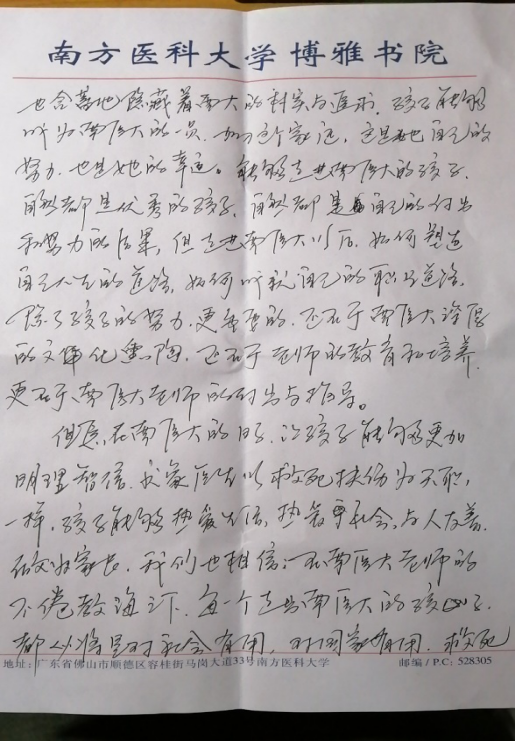 南方医科大学博雅书院
也含蓄地隐藏着南大的科实与追求。孩子能够
成为南医大的一员,加入这个家庭,这是她自己的
努力,也是她的幸运。能够走进南医大的孩子,
自然都是优秀的孩子,自然都是自己的付出
和努力的结果,但走进南医大以后,如何塑造
自己人生的道路,如何听从自己的职业道路,
除了孩子的努力,更重要的,还在于南医大深厚
的文化熏陶,还在于老师的教育和培养,
更在于南医大老师的付出与指导。
但愿在南医大的日子,让孩子能够更加
明理智信,像医生以救死扶伤为天职,
一样,孩子能够热爱生活,热爱社会,与人友善。
作为家长,我们也相信:在南医大老师的
不倦教诲下,每一个走出南医大的孩子,
都必将是对社会有用,对国家有用,救死
地址:广东省佛山市顺德区容桂街马岗大道33号南方医科大学 邮编/P.C: 528305